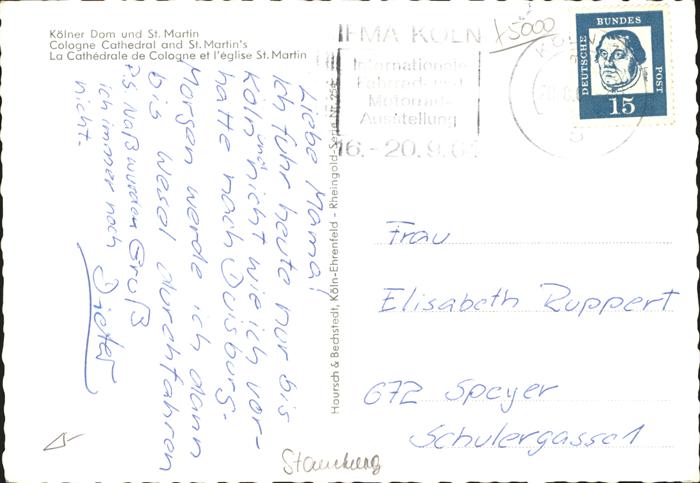 Kölner Dom und St. Martin
Cologne Cathedral and St. Martin's
La Cathédrale de Cologne et l'église St. Martin
IFMA KÖLN
Internationale
Fahrrad- und
Motorrad-
Ausstellung
16.-20.9.64
KÖLN
x5000
DEUTSCHE BUNDES POST
15
Liebe Mama!
Ich fuhr heute nur bis
Köln und nicht wie ich vor-
hatte nach Duisburg.
Morgen werde ich dann
bis Wesel durchfahren
Gruß
Dieter
P.S. Naß wurden
ich immer noch
nicht.
Hoursch & Bechstedt, Köln-Ehrenfeld - Rheingold-Serie Nr.
Frau
Elisabeth Ruppert
672 Speyer
Schulergasse 1